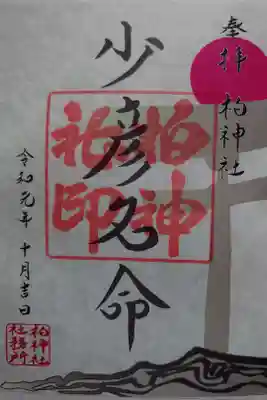 奉拝 柏神社
少彦名命
柏神
社印
令和元年 十月吉日
柏神社
社務所